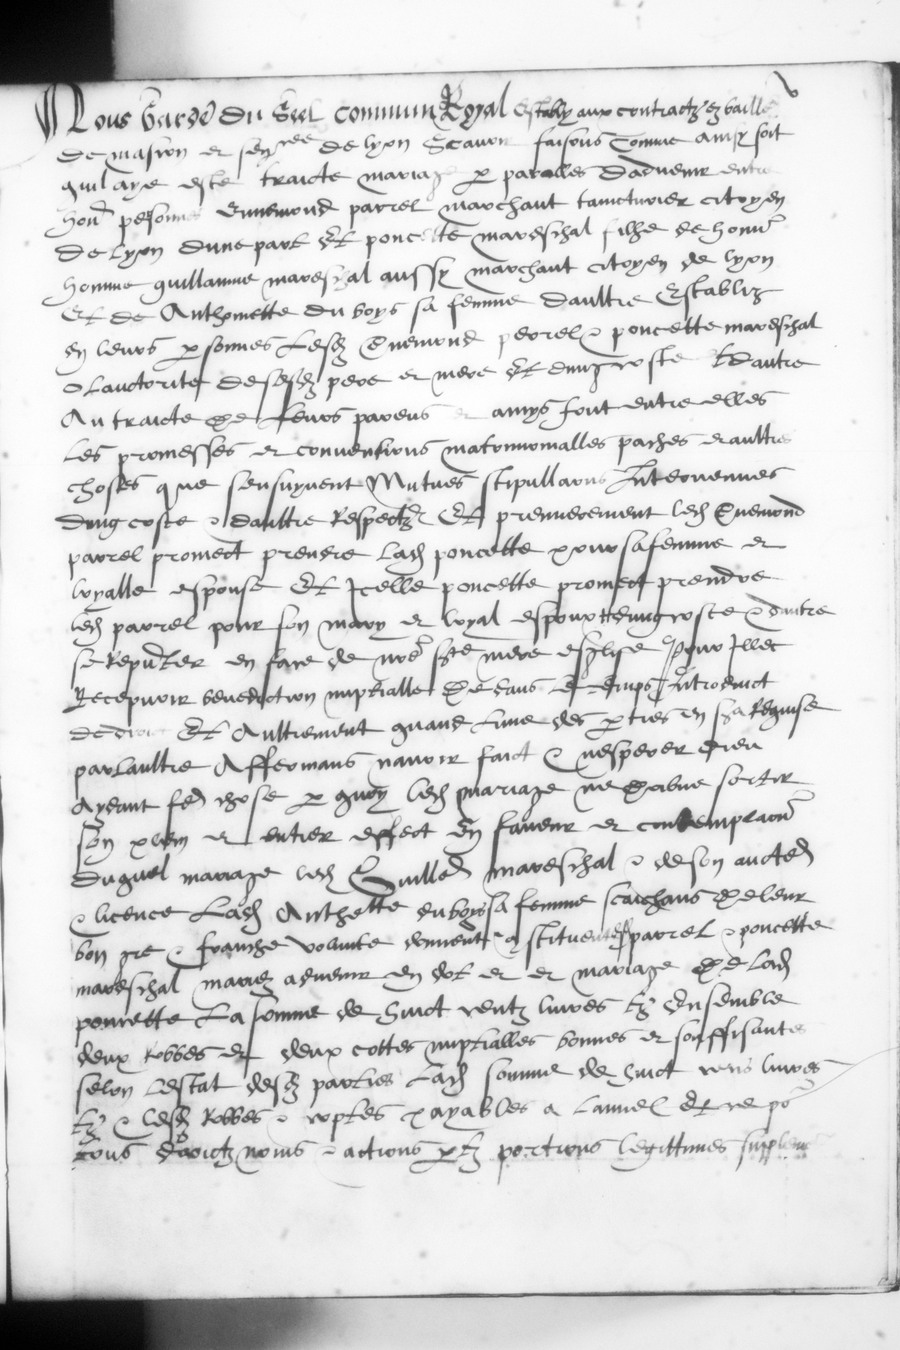 Nous Garde du Seel commun Royal estably aux contractz es baille
de mascon et senn^ce de lyon Scavoir faisons Comme ainsy soit
quil aye este traicte mariage par parolles dadvenir entre
hon personnes Ennemond parrel marchant taincturier citoyen
de lyon dune part Et poncette mareschal filhe de honn
homme guillaume mareschal aussy marchant citoyen de lyon
Et de Anthoinette du boys sa femme daultre Establiz
en leurs personnes Lesd Ennemond perrel & poncette mareschal
& lauctorite de sesd pere et mere Et dung coste & dautre
Au traicte de leurs parens et amys font entre elles
Les promesses et conventions matrimonialles paches et aultres
choses que sensuyvent Mutues stipullaons Intervennues
dung coste & daultre Respect Et premierement led Ennemond
parrel promect prendre lad poncette pour sa femme et
loyalle espouse Et Icelle poncette promect prendre
led parrel pour son mary et loyal espoux dung coste & dautre
se en face de nre ste mere esglise pour Illec
Recepvoir benediction nuptialle dedans le temps Introduict
de droit Et Aultrement quand lune des parties en sera Requise
par laultre Affermans navoir faict & nesperer dieu
Aydant fe chose par quoy led mariage ne doibve sortir
son plein et entier effect En faveur et contemplaon
duquel mariage led Guille mareschal & de son aucte
& licence Lad Anthette du boys sa femme scaichans de leur
bon gre & franche volunte donnent & constituent parrel & poncette
mareschal mariez advenir en dot et et mariage de lad
poncette La somme de huict centz livres tz Ensemble
deux Robbes et deux cottes nuptialles bonnes et souffisantes
selon lestat desd parties Lad somme de huict cens livres
tz & lesd Robbes & coptes payables a lannel Et ce po
tous droictz noms & actions partz portions legittimes supplem